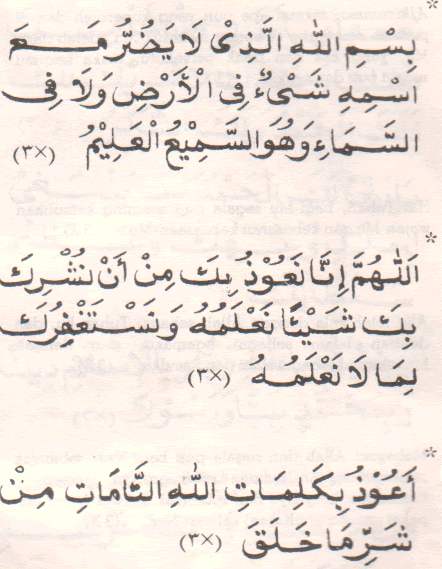 * بِسْمِ اللهِ الَّذِيْ لَا يَضُرُّ مَعَ
اسْمِهِ شَيْءٌ فِي الْأَرْضِ وَلَا فِي
السَّمَاءِ وَهُوَ السَّمِيْعُ الْعَلِيْمُ (٣×)
* اَللّٰهُمَّ إِنَّا نَعُوْذُ بِكَ مِنْ أَنْ نُشْرِكَ
بِكَ شَيْئًا نَعْلَمُهُ وَنَسْتَغْفِرُكَ
لِمَا لَا نَعْلَمُهُ (٣×)
* أَعُوْذُ بِكَلِمَاتِ اللهِ التَّامَاتِ مِنْ
شَرِّ مَا خَلَقَ (٣×)